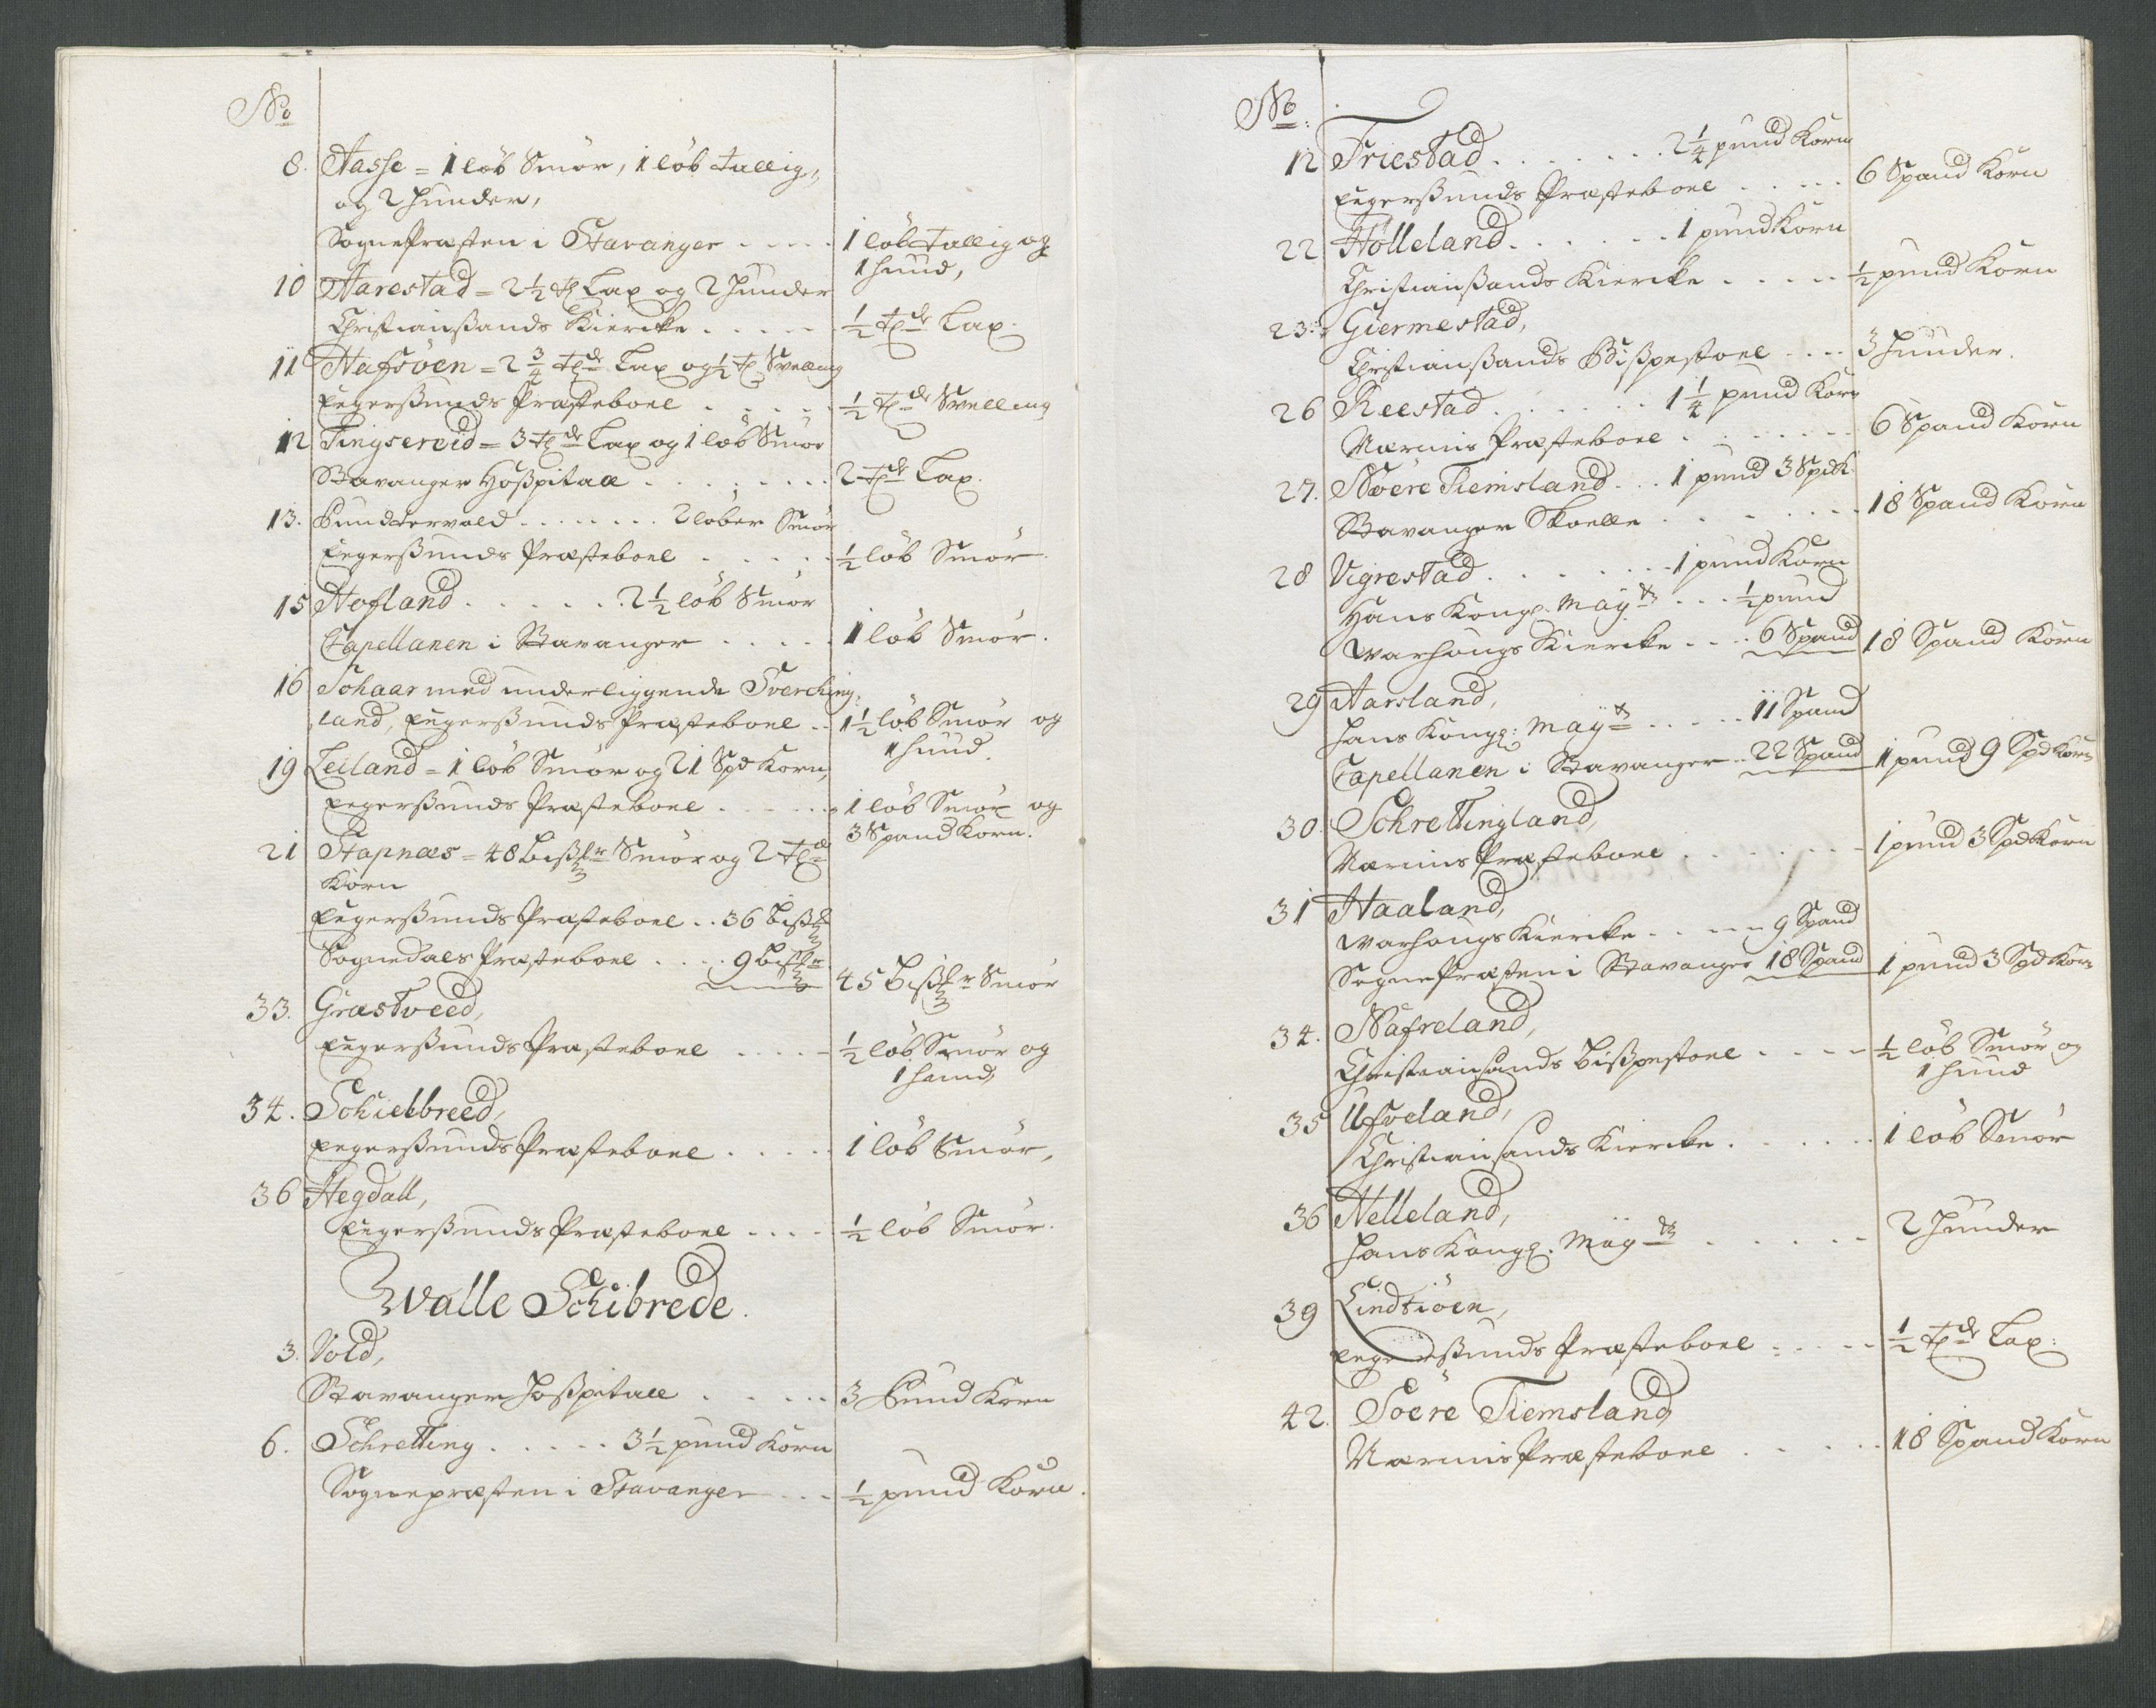 No
8. Aasse = 1 löb Smör, 1 löb tallig,
og 2 huuder,
SognePræsten i Stavanger - - - - 1 löb tallig og
1 huud,
10 Aarestad = 2½ tl Lax og 2 huuder
Christiansands Kiercke . . . . . ½ tlde Lax.
11 Hafsöen = 2¾ tlde Lax og ½ tl Svelling
Eegersunds Præsteboel . . . . . ½ tlde Svelling
12 Tingsereid = 3 tlde Lax og 1 löb Smör
Stavanger Hosspitall . . . . . . . 2 tlde Lax.
13. Pundtervold . . . . . . . . 2 löber Smör
Eegersunds Præsteboel . . . . . ½ löb Smör.
15 Hofland . . . . . . . 2½ löb Smör
Capellanen i Stavanger . . . . . 1 löb Smör.
16 Sohaar med underliggende Sverching,
land, Eegersunds Præsteboel . . 1½ löb Smör og
1 huud.
19 Leiland = 1 löb Smör og 21 Spd Korn,
Eegersunds Præsteboel . . . . . 1 löb Smör og
3 Spand Korn.
21 Stapnæs = 48 bissmr Smör og 2 tlde
Korn
Eegersunds Præsteboel . . 36 biss
Sognedals Præsteboel . . . . 9 bissr
45 Bissr Smör
33. Græstveed,
Eegersunds Præsteboel . . . . . ½ löb Smör og
1 huud,
34. Schielbreed,
Eegersunds Præsteboel . . . . . 1 löb Smör,
36 Hegdall,
Eegersunds Præsteboel . . . . ½ löb Smör.
Walle Schibrede.
3. Vold,
Stavanger Hosspitall . . . . . 3 Pund Korn
6. Schretting . . . . . 3½ pund Korn
Sognepræsten i Stavanger . . . ½ pund Korn.
No.
12 Friestad . . . . . . . 2¼ pund Korn
Eegersunds Præsteboel . . . . . 6 Spand Korn
22 Hölleland . . . . . . 1 pund Korn
Christiansands Kiercke . . . . . ½ pund Korn
23. Giermestad,
Christiansands Bisspestoel . . . . 3 huuder.
26 Reestad . . . . . . 1¼ pund Korn
Nærims Præsteboel . . . . . . . 6 Spand Korn
27. Nöere Tiemsland . . . 1 pund 3 Spd K.
Stavanger Skoelle . . . . . . 18 Spand Korn
28 Vigrestad . . . . . . . 1 pund Korn
Hans Kongl. Mayts . . . ½ pund
Warhougs Kiercke . . . . 6 Spand 18 Spand Korn
29 Aarsland,
Hans Kongl: Mayts . . . . . 11 Spand
Capellanen i Stavanger . . 22 Spand 1 pund 9 Spd Korn
30. Schrettingland,
Nærims Præsteboel . . . . . . . 1 pund 3 Spd Korn
31 Haaland,
Warhougs Kiercke . . . . . 9 Spand
SognePræsten i Stavanger 18 Spand 1 pund 3 Spd Korn
34. Nafreland,
Christiansands Bisspestoel . . . . ½ löb Smör og
1 huud
35 Ufsveland,
Christiansands Kiercke . . . . . . 1 löb Smör
36 Helleland,
Hans Kongl. Mayts . . . . . . 2 huuder
39 Lindtiöen,
Eegersunds Præsteboel . . . . . ½ tlde Lax:
42. Söere Tiemsland,
Nærims Præsteboel . . . . . 18 Spand Korn